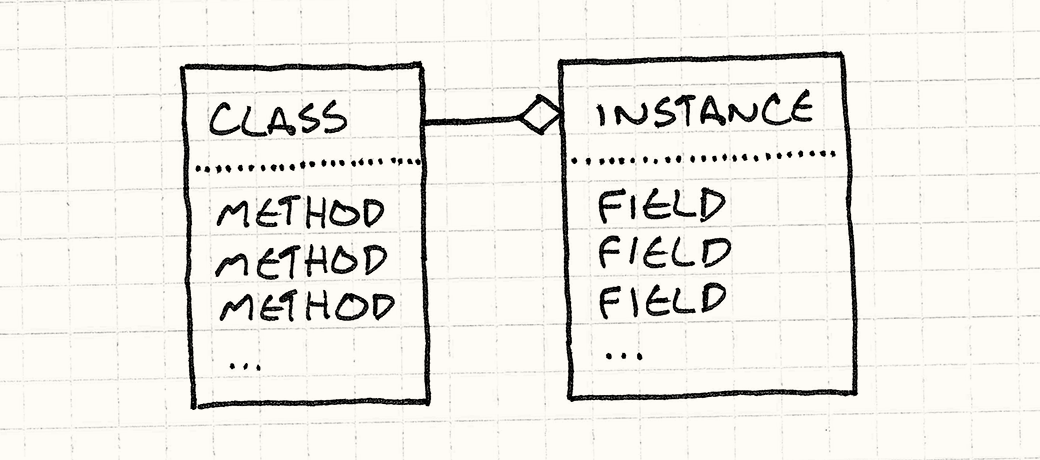 CLASS
METHOD
METHOD
METHOD
...
INSTANCE
FIELD
FIELD
FIELD
...